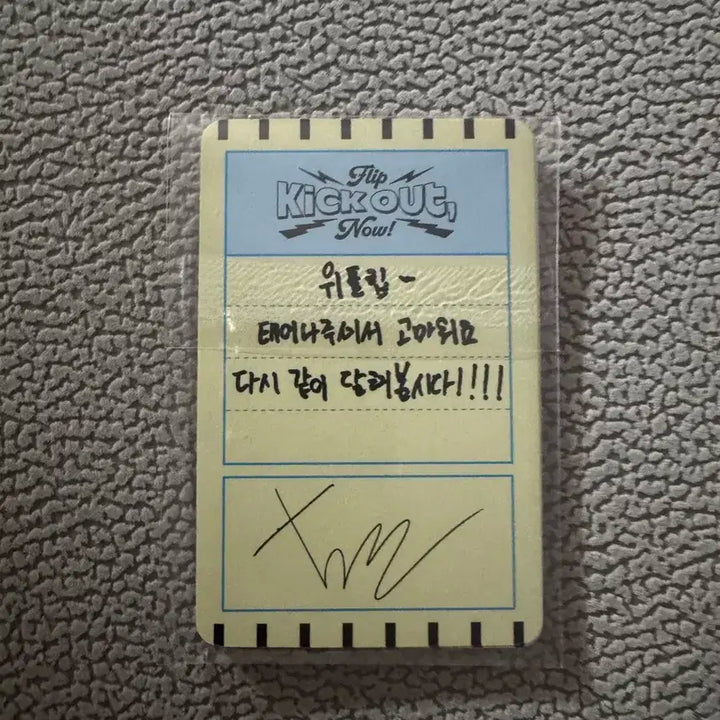 Flip
Kick out,
Now!
위플립~
태어나주셔서 고마워요
다시 같이 달려봅시다!!!!